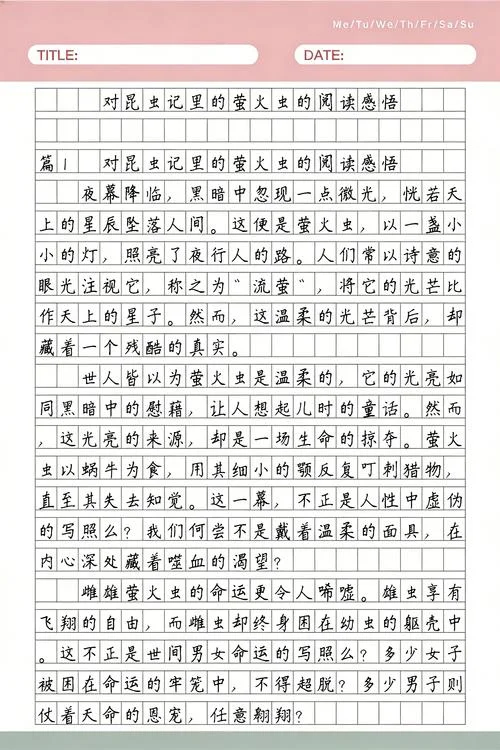 Me/Tu/We/Th/Fr/Sa/Su
TITLE:
DATE:
对昆虫记里的萤火虫的阅读感悟
篇1 对昆虫记里的萤火虫的阅读感悟
夜幕降临，黑暗中忽现一点微光，恍若天
上的星辰坠落人间。这便是萤火虫，以一盏小
小的灯，照亮了夜行人的路。人们常以诗意的
眼光注视它，称之为"流萤"，将它的光芒比
作天上的星子。然而，这温柔的光芒背后，却
藏着一个残酷的真实。
世人皆以为萤火虫是温柔的，它的光亮如
同黑暗中的慰藉，让人想起儿时的童话。然而
，这光亮的来源，却是一场生命的掠夺。萤火
虫以蜗牛为食，用其细小的颚反复叮刺猎物，
直至其失去知觉。这一幕，不正是人性中虚伪
的写照么？我们何尝不是戴着温柔的面具，在
内心深处藏着噬血的渴望？
雌雄萤火虫的命运更令人唏嘘。雄虫享有
飞翔的自由，而雌虫却终身困在幼虫的躯壳中
。这不正是世间男女命运的写照么？多少女子
被困在命运的牢笼中，不得超脱？多少男子则
仗着天命的恩宠，任意翱翔？